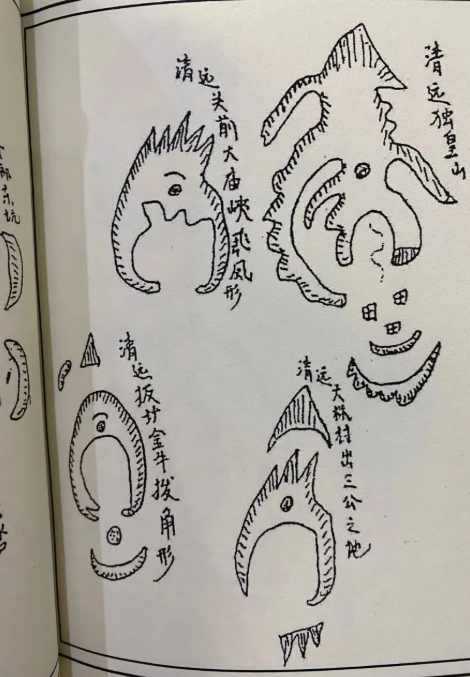 清远独皇山
田
田
田
清远头前大庙峡飛凤形
清远大林村出三公之地
清远金牛拨角形
东坑